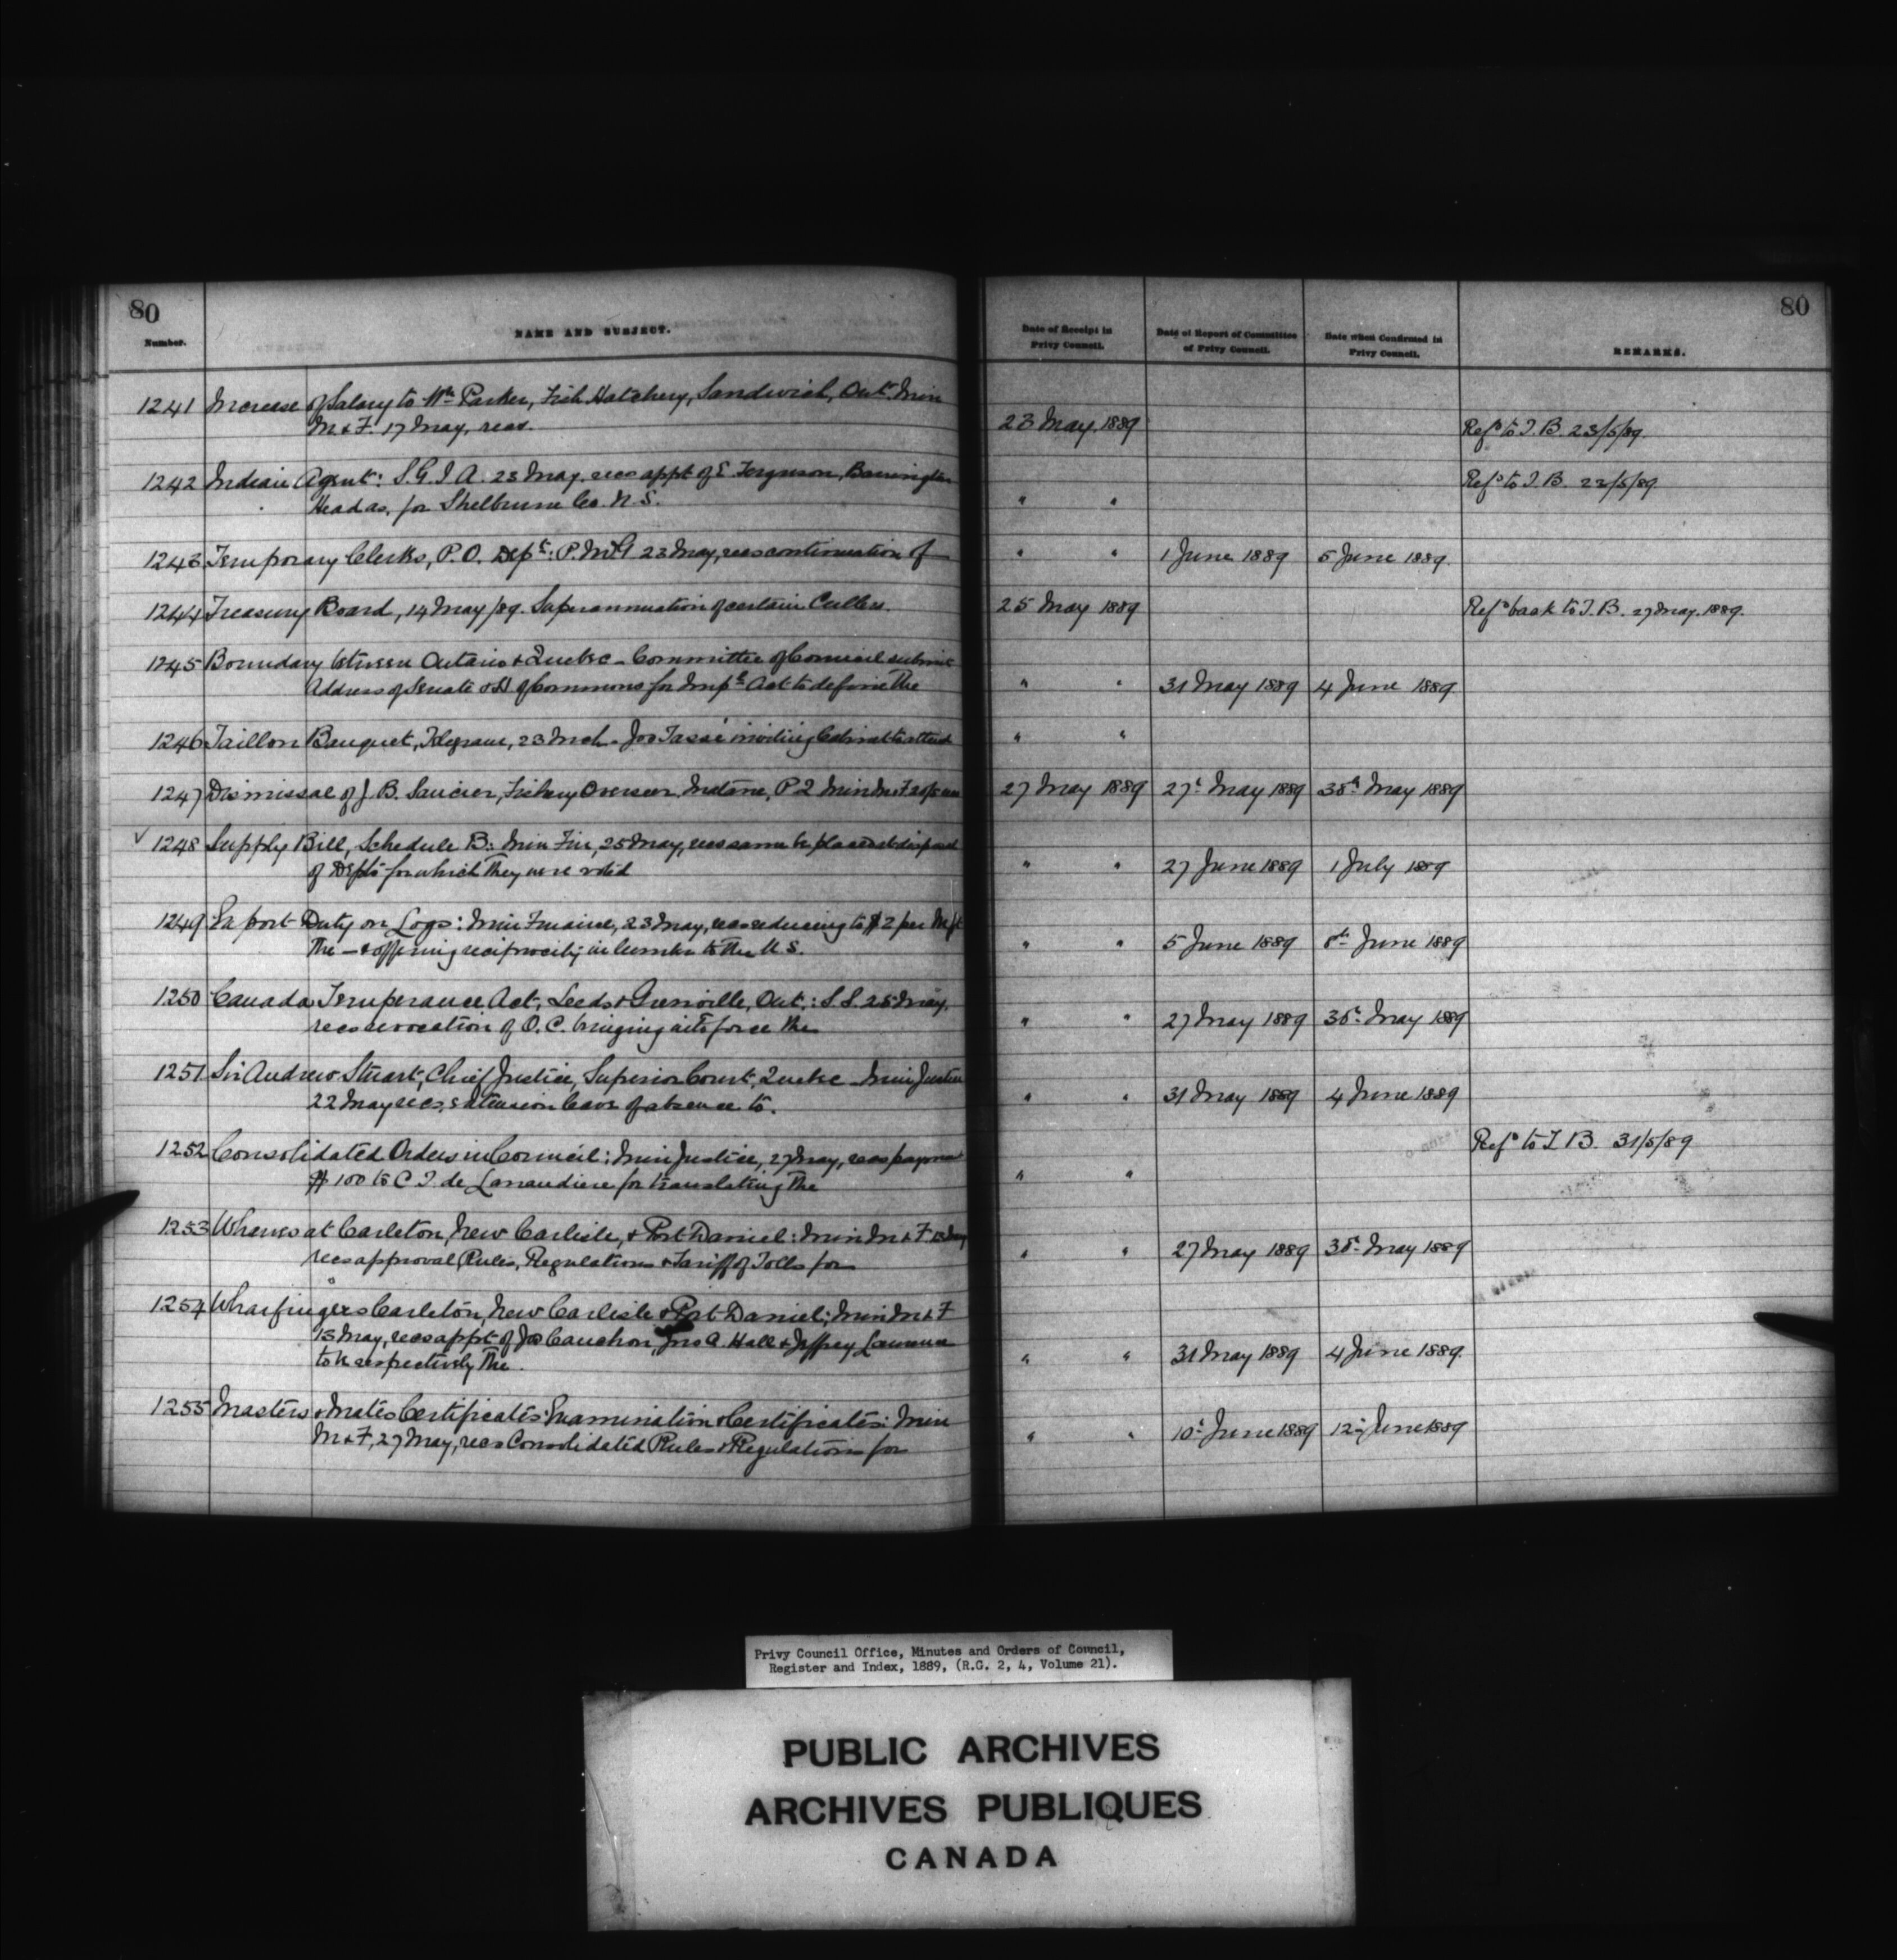 80
Number.
NAME AND SUBJECT.
Date of Receipt in Privy Council.
Date of Report of Committee of Privy Council.
Date when Confirmed in Privy Council.
REMARKS.
80
1241 Increase of Salary to Wm Parker, Fish Hatchery, Sandwich, Ont. Min
M & F. 17 May, recs. 23 May, 1889 Refd to T. B. 23/5/89.
1242 Indian Agent: S. G. I A. 23 May, recs appt of Ferguson, Barrington Refd to T. B. 23/5/89
Head as, for Shelburne Co. N. S. " "
1243 Temporary Clerks, P. O. Dept: P. M. G 23 May, recs continuation of " " 1 June 1889 5 June 1889.
1244 Treasury Board, 14 May/89. Superannuation of certain Cullers. 25 May 1889 Refd back to T. B. 27 May. 1889.
1245 Boundary between Ontario & Quebec - Committee of Council submit
Address of Senate & H of Commons for Impl Act to define the " " 31 May 1889 4 June 1889
1246 Taillon Banquet, Telegram, 23 Inst. Jos Tassé inviting Cabinet to attend " "
1247 Dismissal of J. B. Saucier, Fishery Overseer, Matane, P Q Min M & F 27 May 1889 27t May 1889 30th May 1889
√ 1248 Supply Bill, Schedule B: Min Fin, 25 May, recs same be placed at disposal
of Depts for which they were voted " " 27 June 1889 1 July 1889
1249 Export Duty on Logs: Min Finance, 23 May, recs reducing to $2 per M ft
the — & offering reciprocity in lumber to the U. S. " " 5 June 1889 8th June 1889
1250 Canada Temperance Act, Leeds & Grenville, Ont.: S. S. 25 May,
recs revocation of O. C. bringing into force the " " 27 May 1889 30t May 1889
1251 Sir Andrew Stuart, Chief Justice, Superior Court, Quebec - Min Justice
22 May recs, extension leave of absence to. " " 31 May 1889 4 June 1889
1252 Consolidated Orders in Council: Min Justice, 27 May, recs payment Refd to T B. 31/5/89
$100 to C. T. de Lanaudiere for translating the " "
1253 Wharves at Carleton, New Carlisle, & Port Daniel: Min M & F. 13 May
recs approval Rules, Regulations & Tariff of Tolls for " " 27 May 1889 30t May 1889
1254 Wharfingers Carleton, New Carlisle & Port Daniel; Min M & F
13 May, recs appt of Jos Cauchon, Jno A. Hall & Jeffrey
to be respectively the. " " 31 May 1889 4 June 1889.
1255 Masters & Mates Certificates: Examination & Certificates: Min
M & F, 27 May, recs Consolidated Rules & Regulations for " " 10t June 1889 12 June 1889
Privy Council Office, Minutes and Orders of Council,
Register and Index, 1889, (R.G. 2, 4, Volume 21).
PUBLIC ARCHIVES
ARCHIVES PUBLIQUES
CANADA